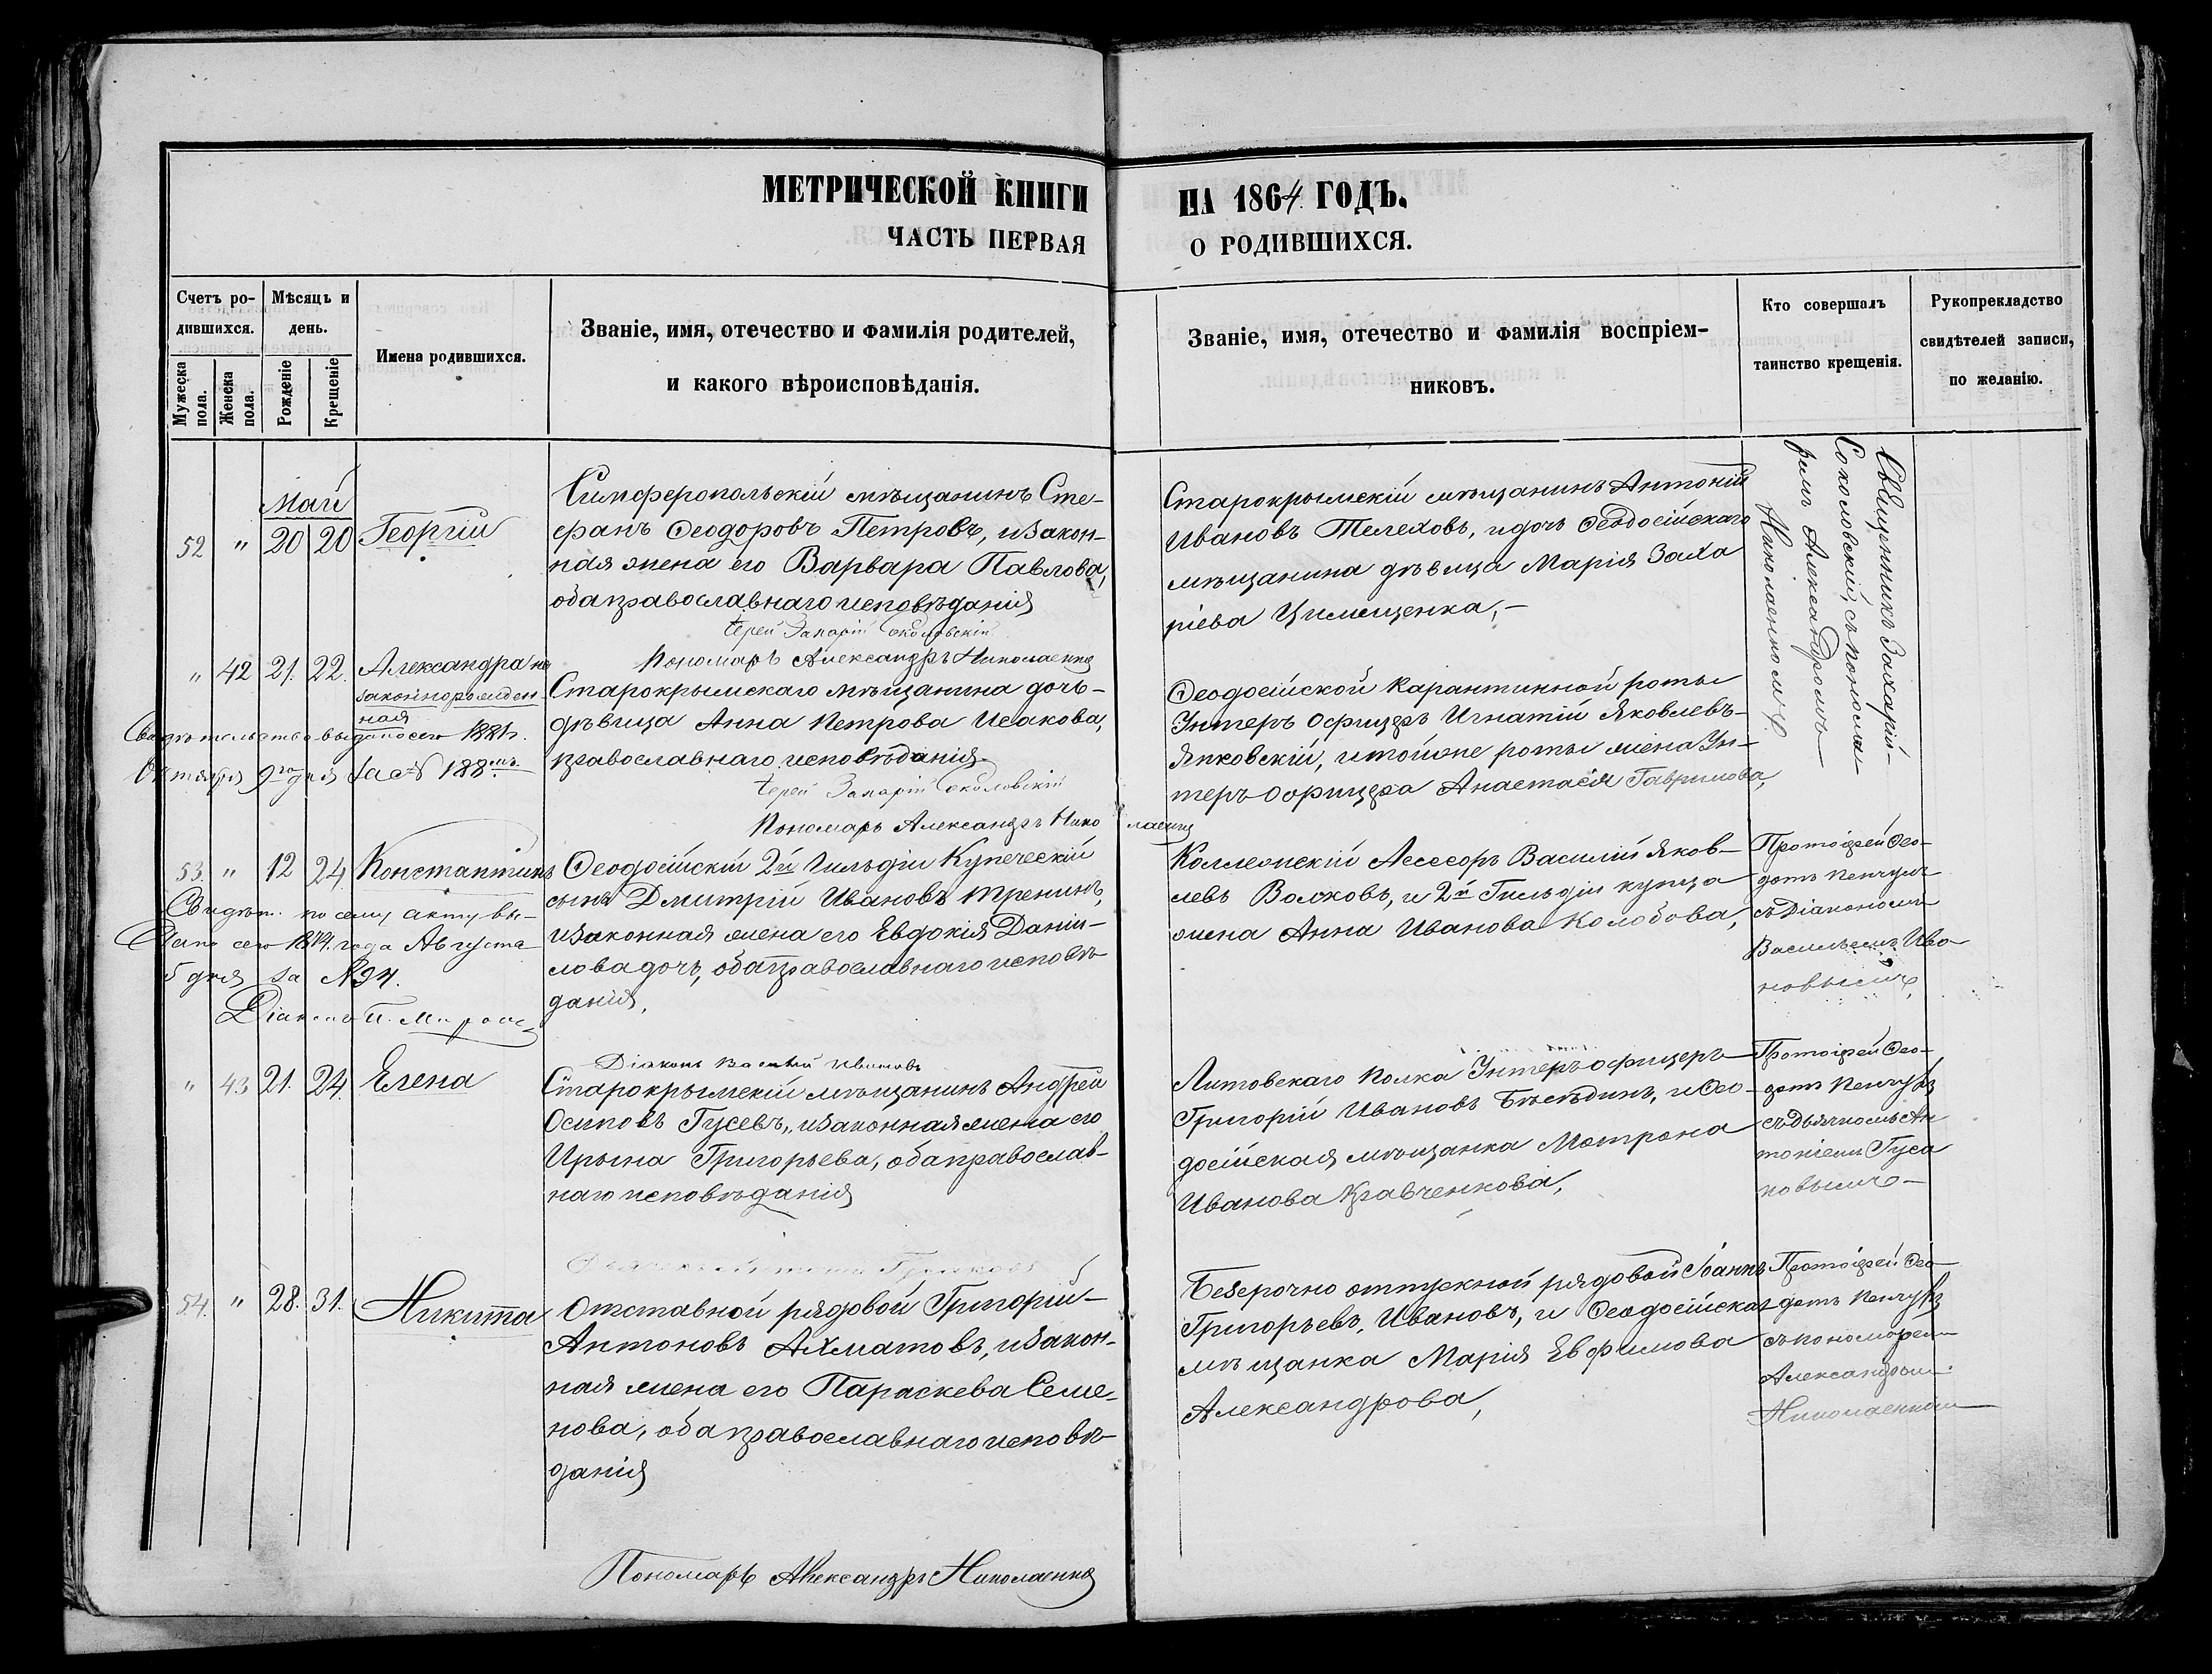 МЕТРИЧЕСКОЙ КНИГИ
НА 1864 ГОДЪ.
ЧАСТЬ ПЕРВАЯ
О РОДИВШИХСЯ.
Счетъ ро-
дившихся.
Мужеска
пола.
Женска
пола.
Мѣсяцъ и
день.
Рожденіе
Крещеніе
Имена родившихся.
Званіе, имя, отечество и фамилія родителей,
и какого вѣроисповѣданія.
Званіе, имя, отечество и фамилія воспріем-
никовъ.
Кто совершалъ
таинство крещенія.
Рукоприкладство
свидѣтелей записи,
по желанію.
Май
52 " 20 20 Георгій
Симферопольскій мѣщанинъ Сте-
фанъ Ѳеодоровъ Петровъ, и закон-
ная жена его Варвара Павлова,
оба православнаго исповѣданія
Іерей Захарій Соколовскій
Пономарь Александръ Николаенко
Старокрымскій мѣщанинъ Антоній
Ивановъ Телеховъ, и дочь Ѳеодосійскаго
мѣщанина дѣвица Марія Заха
ріева Цимиценка,-
Священникъ Захарій
Соколовскій, съ понома-
ремъ Александромъ
Николаенкомъ.
" 42 21. 22. Александра не
законнорожден-
ная
Свидѣтельство выдано сего 1881 г.
Октября 9го дня за № 188мъ
Старокрымскаго мѣщанина дочь-
дѣвица Анна Петрова Исакова,
православнаго исповѣданія.
Іерей Захарій Соколовскій
Пономарь Александръ Николаенко
Ѳеодосійской карантинной роты
Унтеръ Офицеръ Игнатій Яковлевъ-
Янковскій, и тойже роты жена Ун-
теръ Офицера Анастасія Гаврилова,
53. " 12 24 Константинъ
Свидѣт. по сему акту вы-
дано сего 1874. года Августа
5 дня за №94.
Діаконъ
Ѳеодосійскій 2й Гильдіи Купеческій
сынъ Дмитрій Ивановъ Тренинъ,
и законная жена его Евдокія Даніи-
лова дочь, оба православнаго исповѣ
данія,
Діаконъ Василій Ивановъ
Коллежскій Ассесоръ Василій Яков-
левъ Волковъ, и 2й Гильдіи купца
жена Анна Иванова Колобова,
Протоіерей Ѳео-
дотъ
съ Діакономъ
Васильемъ Ива-
новымъ,
" 43 21. 24. Елена
Старокрымскій мѣщанинъ Андрей
Осиповъ Гусевъ, и законная жена его
Ирына Григорьева, оба православ-
наго исповѣданія
Литовскаго полка Унтеръ офицеръ
Григорій Ивановъ Бѣсѣдинъ, и Ѳео-
досійская мѣщанка Мотрона
Иванова Кравченкова,
Протоіерей Ѳео-
дотъ
съ дьячкомъ Ан
тоніемъ Гуса
ковымъ-
54. " 28. 31. Никита
Отставной рядовой Григорій-
Антоновъ Ахматовъ, и закон-
ная жена его Параскева Семе-
нова, оба православнаго исповѣ-
данія
Безсрочно отпускной рядовой Іоаннъ
Григорьевъ, Ивановъ, и Ѳеодосійская
мѣщанка Марія Евфимова
Александрова,
Протоіерей Ѳео-
дотъ
съ пономаремъ
Александромъ
Николаенкомъ
Пономарь Александръ Николаенко